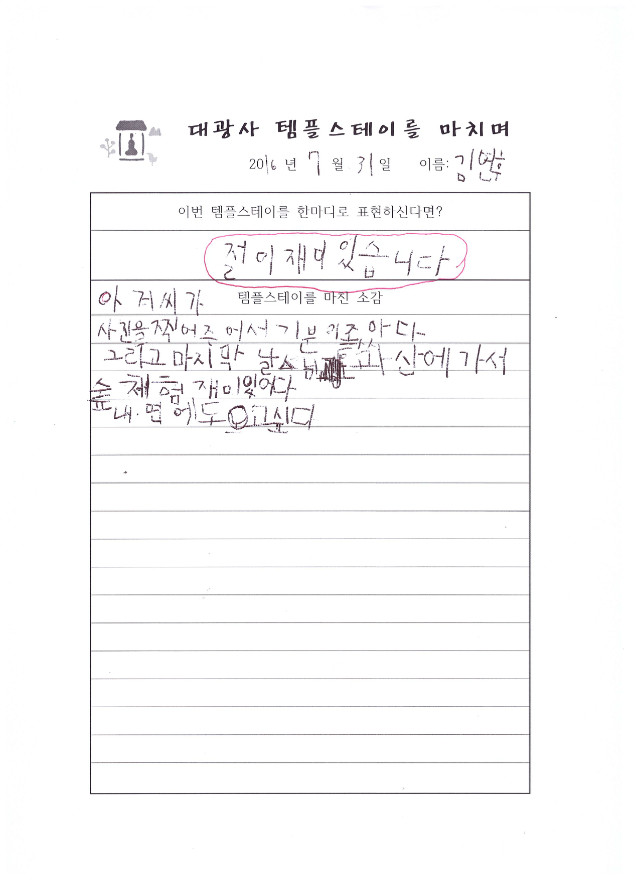 대광사 템플스테이를 마치며
2016 년 7 월 31 일 이름: 김연후
이번 템플스테이를 한마디로 표현하신다면?
절이 재미 있습니다
템플스테이를 마친 소감
아저씨가
사진을 찍어주어서 기분이 좋았다
그리고 마지막 날 스님과 산에 가서
숲 체험 재미있었다
내.면에도 오고싶다